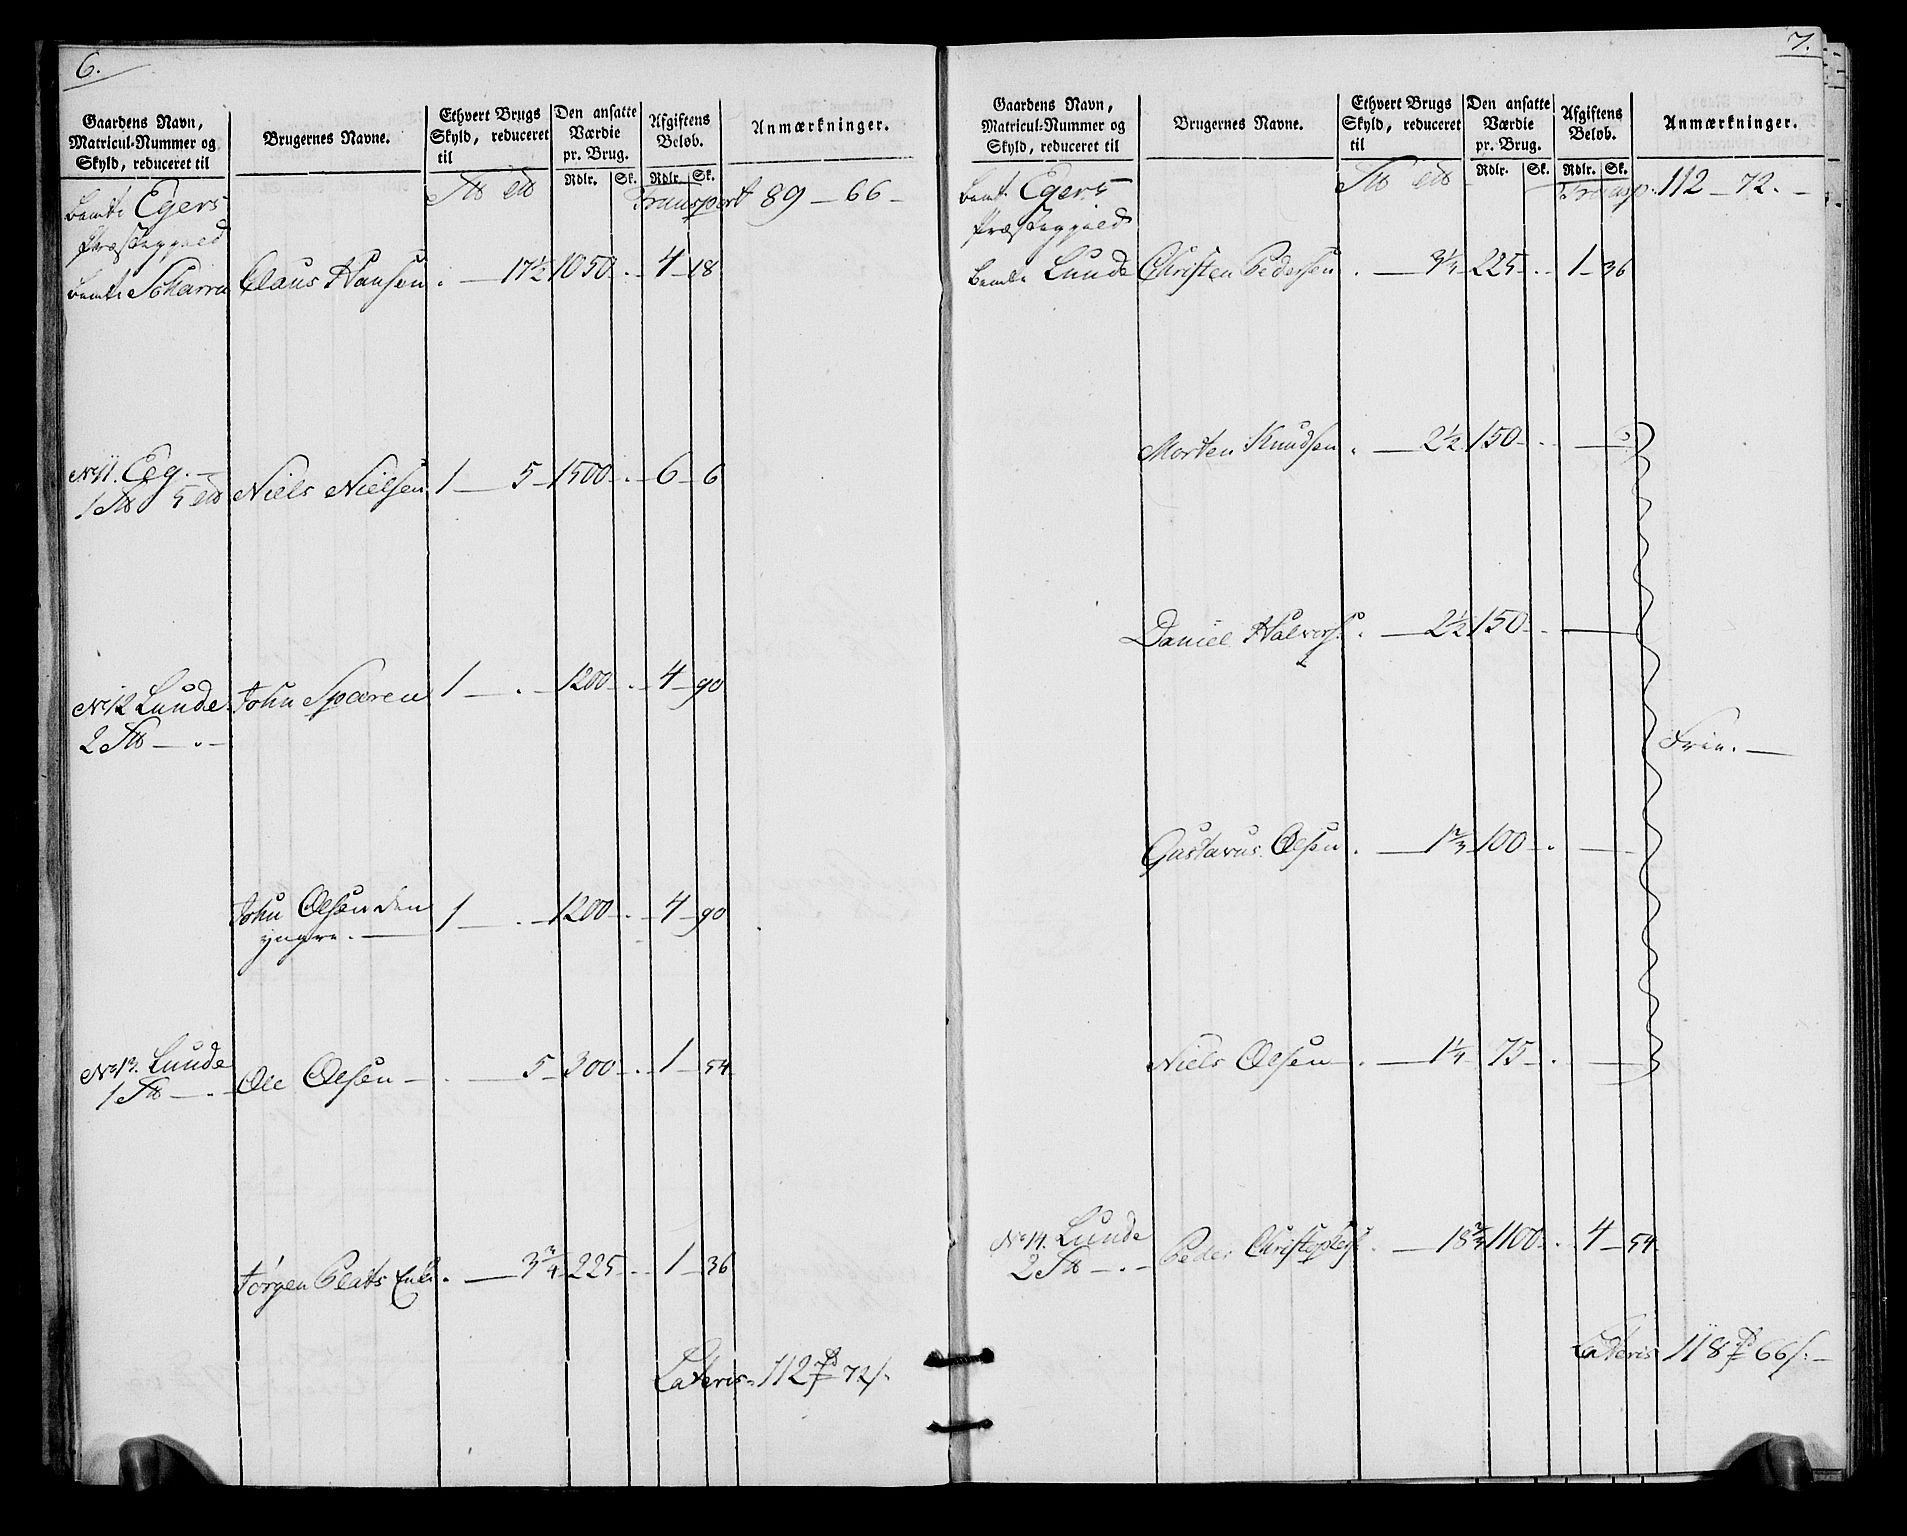 6.
Gaardens Navn,
Matricul-Nummer og
Skyld, reduceret til
Brugernes Navne.
Ethvert Brugs
Skyld, reduceret
til
Den ansatte
Værdie
pr. Brug.
Rdlr. Sk.
Afgiftens
Beløb.
Rdlr. Sk.
Anmærkninger.
Transport 89 - 66 -
Egers
Præstegield
Claus Hansen . - 17 1/2 1050 . - 4 - 18
No 11. Eeg. -
1 5 Niels Nielsen 1 - 5 - 1500 - . - 6 - 6
No 12 Lunde John Sparen 1 - . - 1200 - . - 4 - 90
2 - . -
John Olsen den 1 - . - 1200 - . - 4 - 90
yngre. -
No 13. Lunde
1 - . - Ole Olsen - . - 5 - 300 - . - 1 - 54
Jørgen . - 3 3/4 - 225 - . - 1 - 36
Lateris - 112 72/.
7.
Gaardens Navn,
Matricul-Nummer og
Skyld, reduceret til
Brugernes Navne.
Ethvert Brugs
Skyld, reduceret
til
Den ansatte
Værdie
pr. Brug.
Rdlr. Sk.
Afgiftens
Beløb.
Rdlr. Sk.
Anmærkninger.
Transp. 112 - 72. -
Egers
Præstegield
Lunde Christen Pedersen . - 225 - . - 1 - 36
Morten Knudsen . - 2 1/2 150 - . -
Daniel Halvors. . - 2 1/2 150 - . -
Frie. -
Gustavus Olsen . - 1 2/3 100 - . -
Niels Olsen . - 1 1/4 75 - . -
No 14. Lunde
2 - . - Peder . - 1100 - . 4 - 54
Lateris 118 66/. -